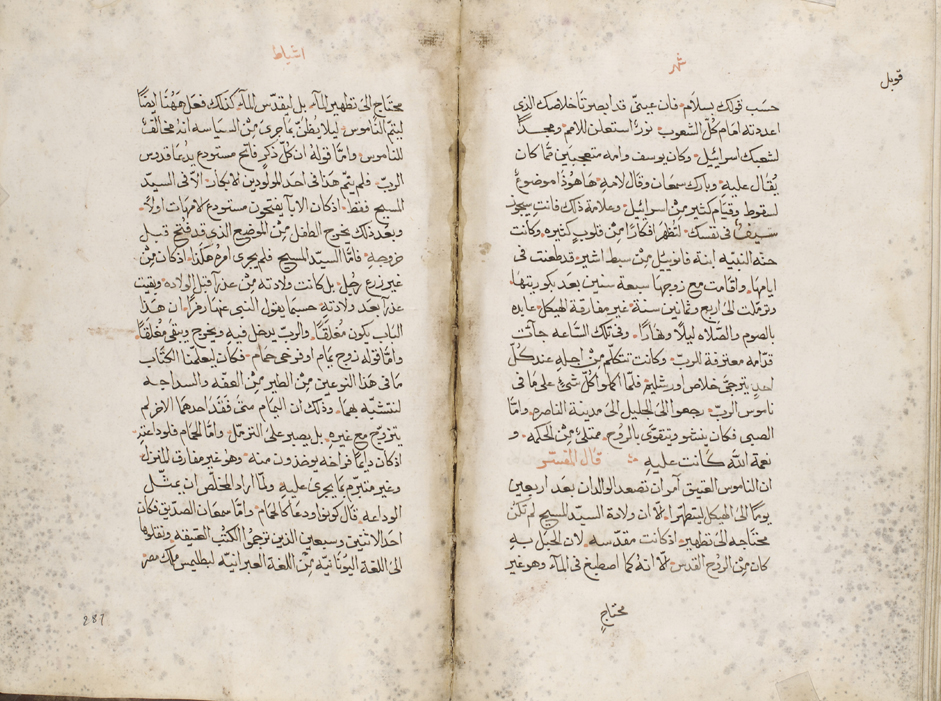 قوبل
شهر
حسب قولك بسلام فان عينيّ قد ابصرتا خلاصك الذى
اعددته امام كلّ الشعوب نورًا استعلن للامم ومجدًا
لشعبك اسرائيل وكان يوسف وامه متعجبين ممّا كان
يُقال عليه وبارك سمعان وقال لامه ها هوذا موضوعٌ
لسقوط وقيام كثير من اسرائيل وعلامة ذلك فانتِ سيجوز
سيفٌ فى نفسك لتظهر افكارًا من قلوبٍ كثيره وكانت
حنه النبيه ابنة فانوييل من سبط اشير قد طعنت فى
ايامها واقامت مع زوجها سبعة سنين بعد بكوريتها
وترمّلت الى اربع وثمانين سنة غير مفارقة الهيكل عابده
بالصوم والصلاه ليلًا ونهارًا وفى تلك الساعه جآت
قدّامه معترفة للربّ وكانت تتكلم من اجله عند كلّ
احدٍ يترجّى خلاص اورشليم فلمّا اكملوا كلّ شىء على ما فى
ناموس الربّ رجعوا الى الجليل الى مدينة الناصره وامّا
الصبى فكان ينشو ويتقوّى بالروح ممتلئ من الحكمه و
نعمة الله كانت عليه قال المفسّر
ان الناموس العتيق امر ان تصعد الوالدان بعد اربعين
يومًا الى الهيكل ليتطهّرا الّا ان ولادة السيّد المسيح لم تكن
محتاجه الى تطهير اذ كانت مقدّسه لان الحبل به
كان من الروح القدس الّا انه كما اصطبغ فى المآء وهو غير
محتاجٍ
اشباط
محتاج الى تطهير المآء بل ليقدّس المآء كذلك فعل ههنا ايضًا
ليتم الناموس ليلا يظنّ بما جرى من السياسه انه مخالف
للناموس وامّا قوله ان كلّ ذكرٍ فاتح مستودع يدعا قدوس
الربّ فلم يتمّ هذا فى احد المولودين الابكار الّا فى السيّد
المسيح فقط اذ كان الابآ يفتحون مستودع الامهات اولًا
وبعد ذلك يخرج الطفل من الموضع الذى قد فُتح قبل
خروجه فامّا السيّد المسيح فلم يجرى امره هكذا اذ كان من
غير زرع رجل بل كانت ولادته من عذرآ قبل الولاده وبقيت
عذرآ بعد ولادته حسبما يقول النبى عنها رمزًا ان هذا
الباب يكون مُغلقًا والرب يدخل فيه ويخرج ويبقى مُغلقًا
وامّا قوله زوج يمام او فرخى حمام فكان ليعلّمنا الكتاب
ما فى هذا النوعين من الطير من العفه والسداجه
لنتشبّه بهما وذلك ان اليمام متى فقد احدهما الاخر لم
يتزوّج مع غيره بل يصبر على الترمّل وامّا الحمام فلوداعته
اذ كان دايمًا فراخه يوخذون منه وهو غير مفارق المنزل
وغير متبرّم بما يجرى عليه ولمّا اراد المخلص ان يمثّل
الوداعه قال كونوا ودعا كالحمام وامّا سمعان الصدّيق فكان
احد الاثنين وسبعين الذين ترجموا الكتب العتيقه ونقلوها
الى اللغة اليونانيّه من اللغة العبرانيّه لبطليمس ملك مصر
287